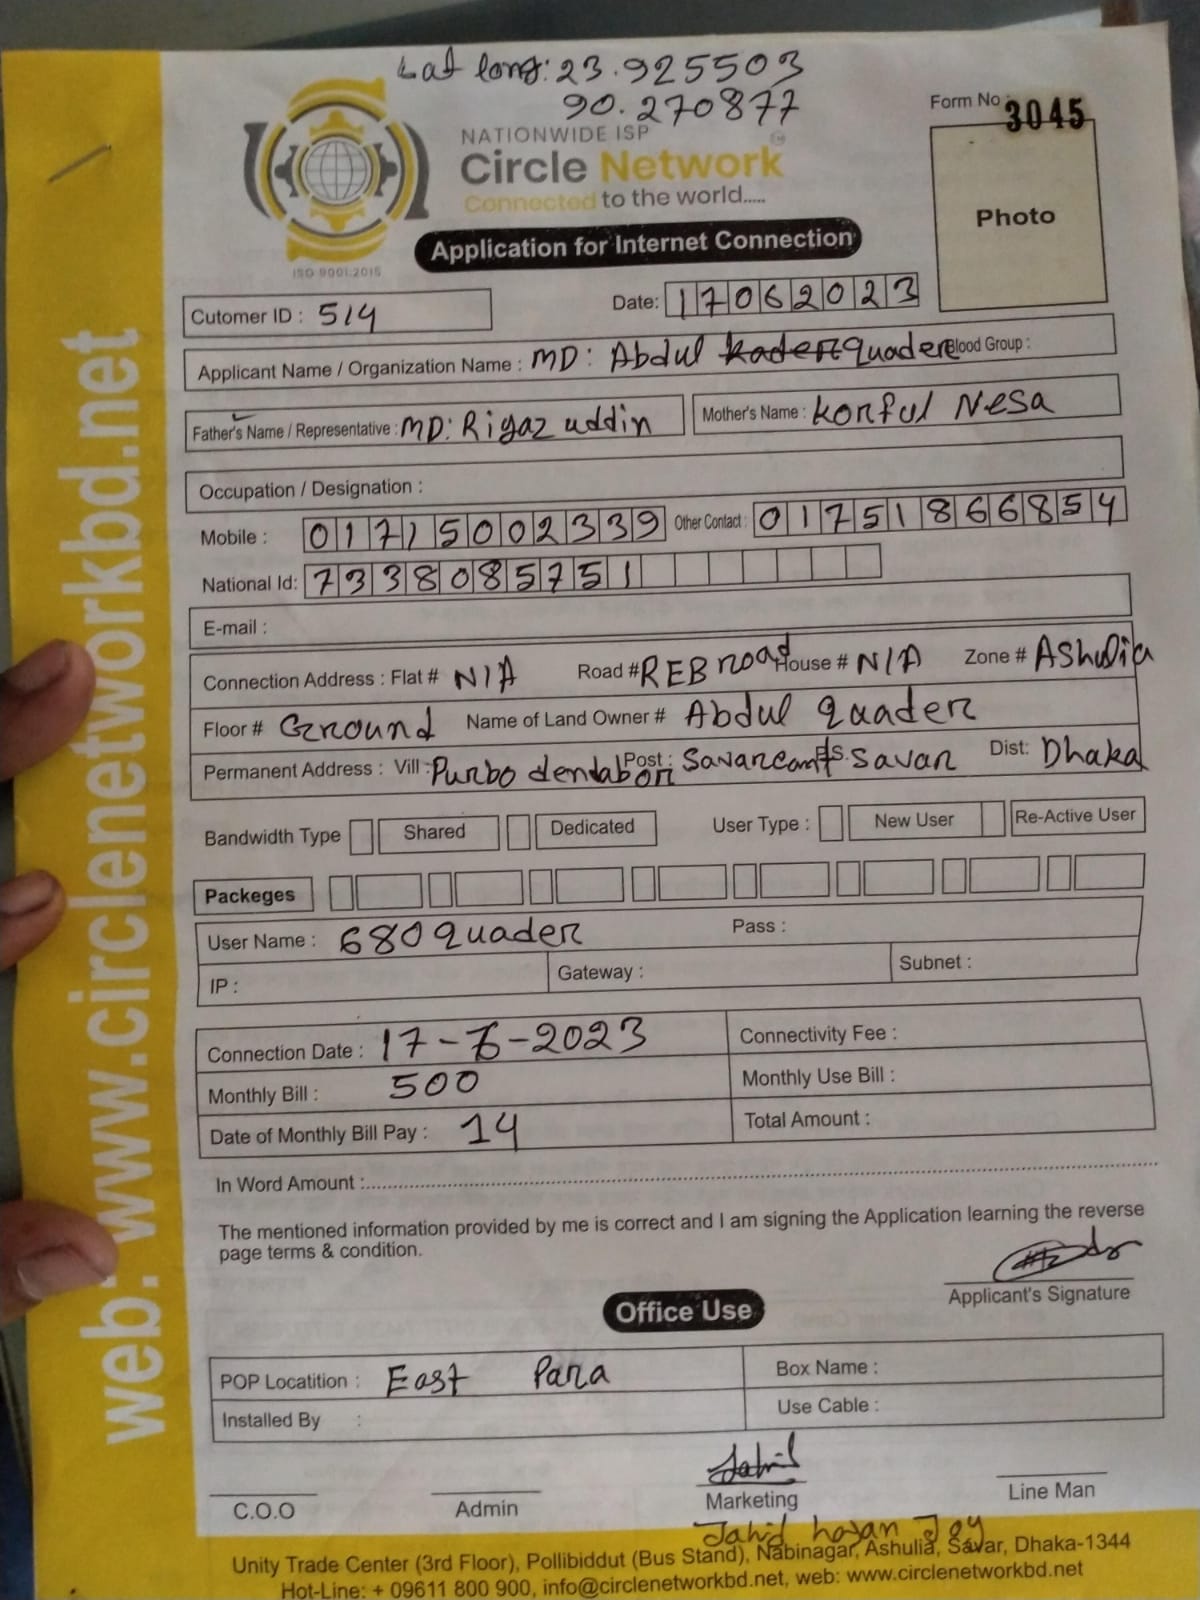 Lat long: 23.925503
90.270877
Form No : 3045
NATIONWIDE ISP
Circle Network
Connected to the world.....
ISO 9001:2015
Photo
Application for Internet Connection
Cutomer ID : 514
Date: 17062023
Applicant Name / Organization Name : MD: Abdul kader quader Blood Group :
Father's Name / Representative : MD: Riyaz uddin Mother's Name : Korful Nesa
Occupation / Designation :
Mobile : 01715002339 Other Contact : 01751866854
National Id: 7338085751
E-mail :
Connection Address : Flat # N/A Road # REB road House # N/A Zone # Ashulia
Floor # Ground Name of Land Owner # Abdul quader
Permanent Address : Vill : Purbo dendabor Post : Savarcantt P.S. Savar Dist: Dhaka
Bandwidth Type Shared Dedicated User Type : New User Re-Active User
Packeges
User Name : 680quader Pass :
IP : Gateway : Subnet :
Connection Date : 17-6-2023 Connectivity Fee :
Monthly Bill : 500 Monthly Use Bill :
Date of Monthly Bill Pay : 14 Total Amount :
In Word Amount :
The mentioned information provided by me is correct and I am signing the Application learning the reverse
page terms & condition.
Applicant's Signature
Office Use
POP Locatition : East Para Box Name :
Installed By : Use Cable :
Jahid
C.O.O Admin Marketing Line Man
Jahid hasan Joy
Unity Trade Center (3rd Floor), Pollibiddut (Bus Stand), Nabinagar, Ashulia, Savar, Dhaka-1344
Hot-Line: + 09611 800 900, info@circlenetworkbd.net, web: www.circlenetworkbd.net
web: www.circlenetworkbd.net